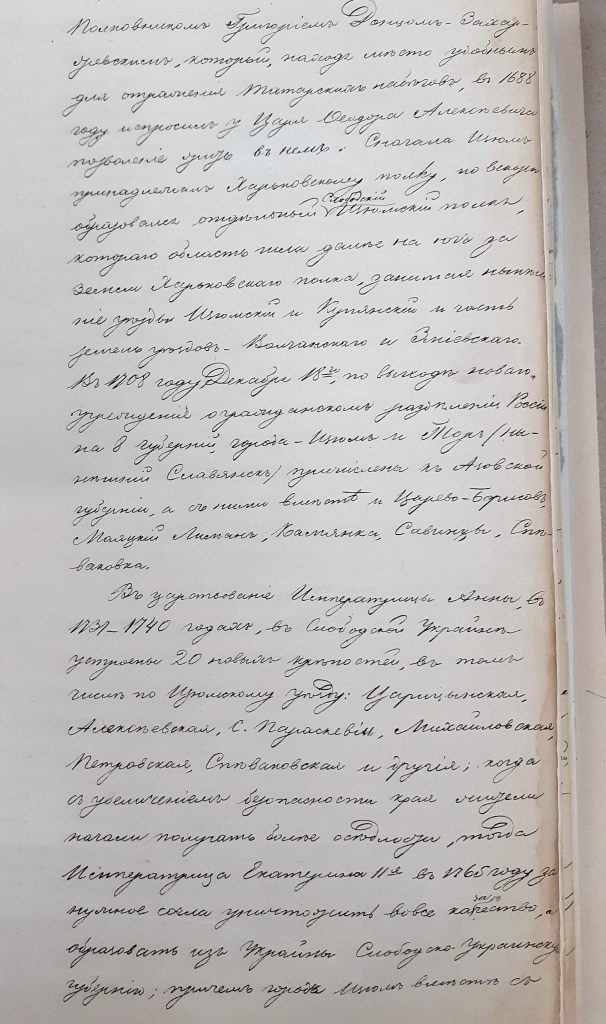 Полковникомъ Григоріемъ Донцомъ-Захар-
жевскимъ, который, находя мѣсто удобнымъ
для отраженія Татарскихъ набѣговъ, въ 1688
году испросилъ у Царя Ѳеодора Алексѣевича
позволеніе жить въ немъ. Сначала Изюмъ
принадлежалъ Харьковскому полку, но вскорѣ
образовался отдѣльный Слободскій Изюмскій полкъ,
котораго область шла далѣе на югъ за
земли Харьковскаго полка, занимая нынѣш-
ніе уѣзды Изюмскій и Купянскій и часть
земель уѣздовъ - Волчанскаго и Зміевскаго.
Въ 1708 году Декабря 18го, по выходѣ новаго
учрежденія о гражданскомъ раздѣленіи Россіи
на 8 губерній, города - Изюмъ и Торъ /ны-
нѣшній Славянскъ/ причислены къ Азовской
губерніи, а съ ними вмѣстѣ и Царево-Борисовъ,
Маяцкій Лиманъ, Камянка, Савинцы, Спѣ-
ваковка.
Въ царствованіе Императрицы Анны, въ
1731-1740 годахъ, въ Слободской Украинѣ
устроены 20 новыхъ крѣпостей, въ томъ
числѣ по Изюмскому уѣзду: Царицынская,
Алексѣевская, С. Параскевіи, Михайловская,
Петровская, Спѣваковская и другія; когда
съ увеличеніемъ безопасности края жители
начали получать болѣе осѣдлости, тогда
Императрица Екатерина IIя въ 1765 году за
нужное сочла уничтожить вовсе казачество, а
образовать изъ Украйны Слободско-Украинскую
губернію; причемъ городъ Изюмъ вмѣстѣ съ